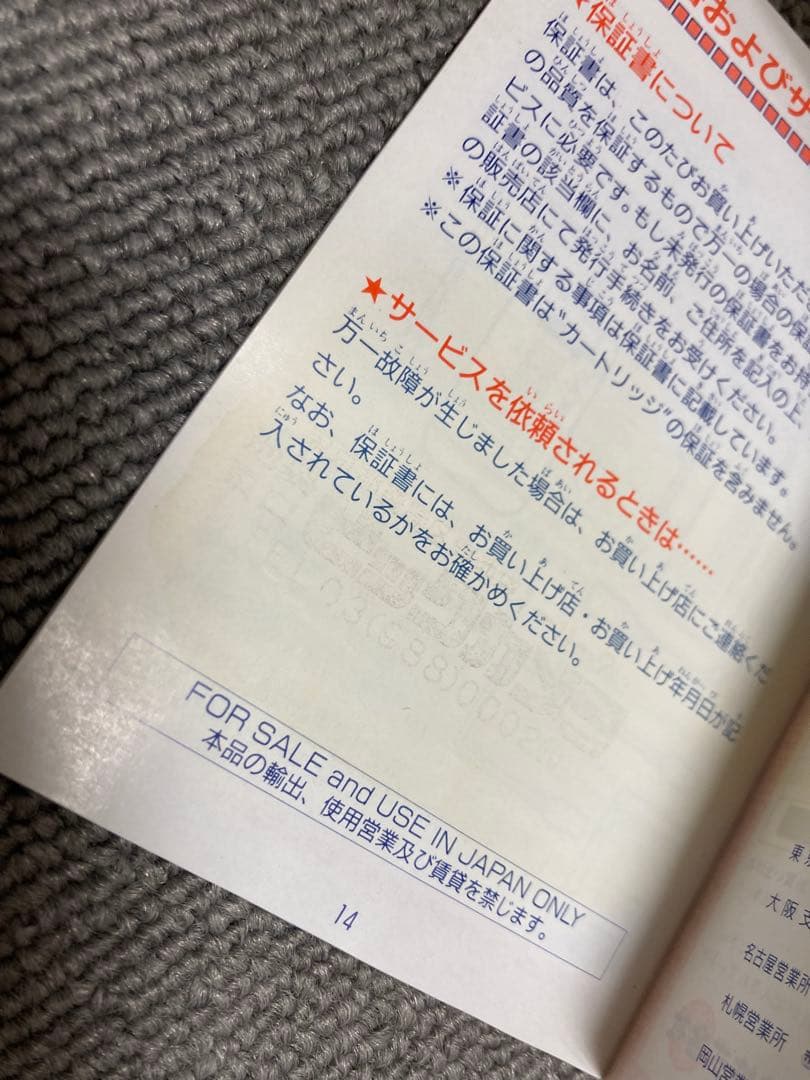 およびサ
★保証書について
保証書は、このたびお買い上げいただ
の品質を保証するもので万一の場合の保
ビスに必要です。もし未発行の保証書をお持
証書の該当欄に、お名前、ご住所を記入の上、
の販売店にて発行手続きをお受けください。
※保証に関する事項は保証書に記載しています。
※この保証書は"カートリッジ"の保証を含みません。
★サービスを依頼されるときは……
万一故障が生じました場合は、お買い上げ店にご連絡くだ
さい。
なお、保証書には、お買い上げ店・お買い上げ年月日が記
入されているかをお確かめください。
FOR SALE and USE IN JAPAN ONLY
本品の輸出、使用営業及び賃貸を禁じます。
14
東京
大阪支
名古屋営業所
札幌営業所
岡山営業